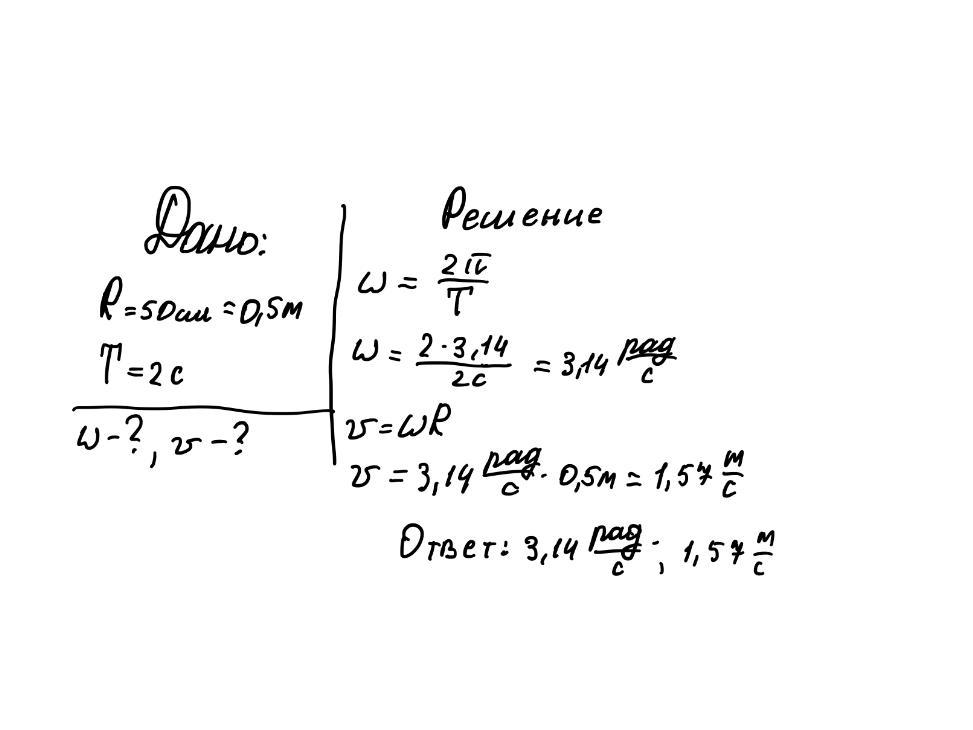 Дано:
R = 50см = 0,5м
T = 2 с
ω - ?, v - ?
Решение
ω = 2π/T
ω = 2 · 3,14/2с = 3,14 рад/с
v = ωR
v = 3,14 рад/с · 0,5м = 1,57 м/с
Ответ: 3,14 рад/с ; 1,57 м/с